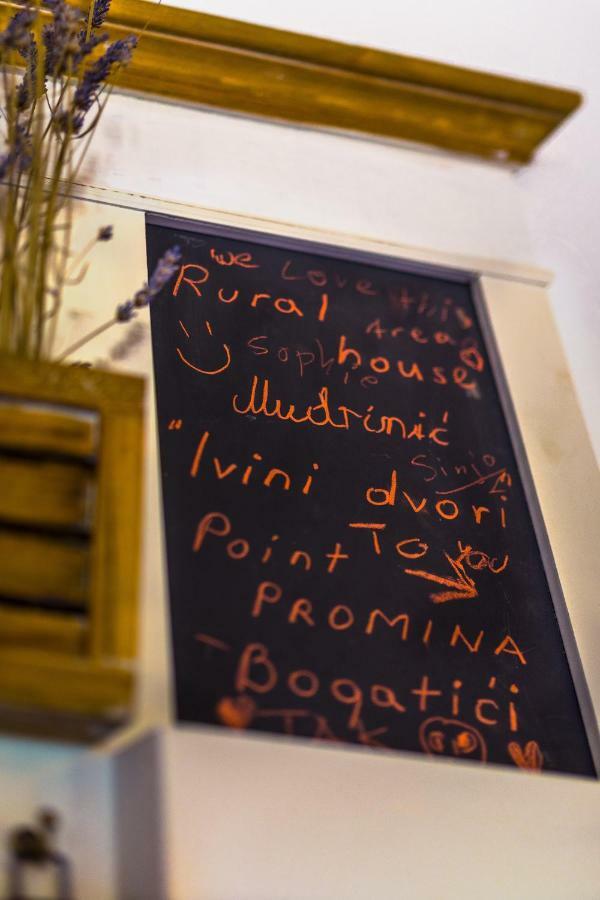 we Love this
Rural Area
Sophie house
Mudrinić
Sinio
"Ivini dvori"
Point To You
PROMINA
- Bogatići
TAK